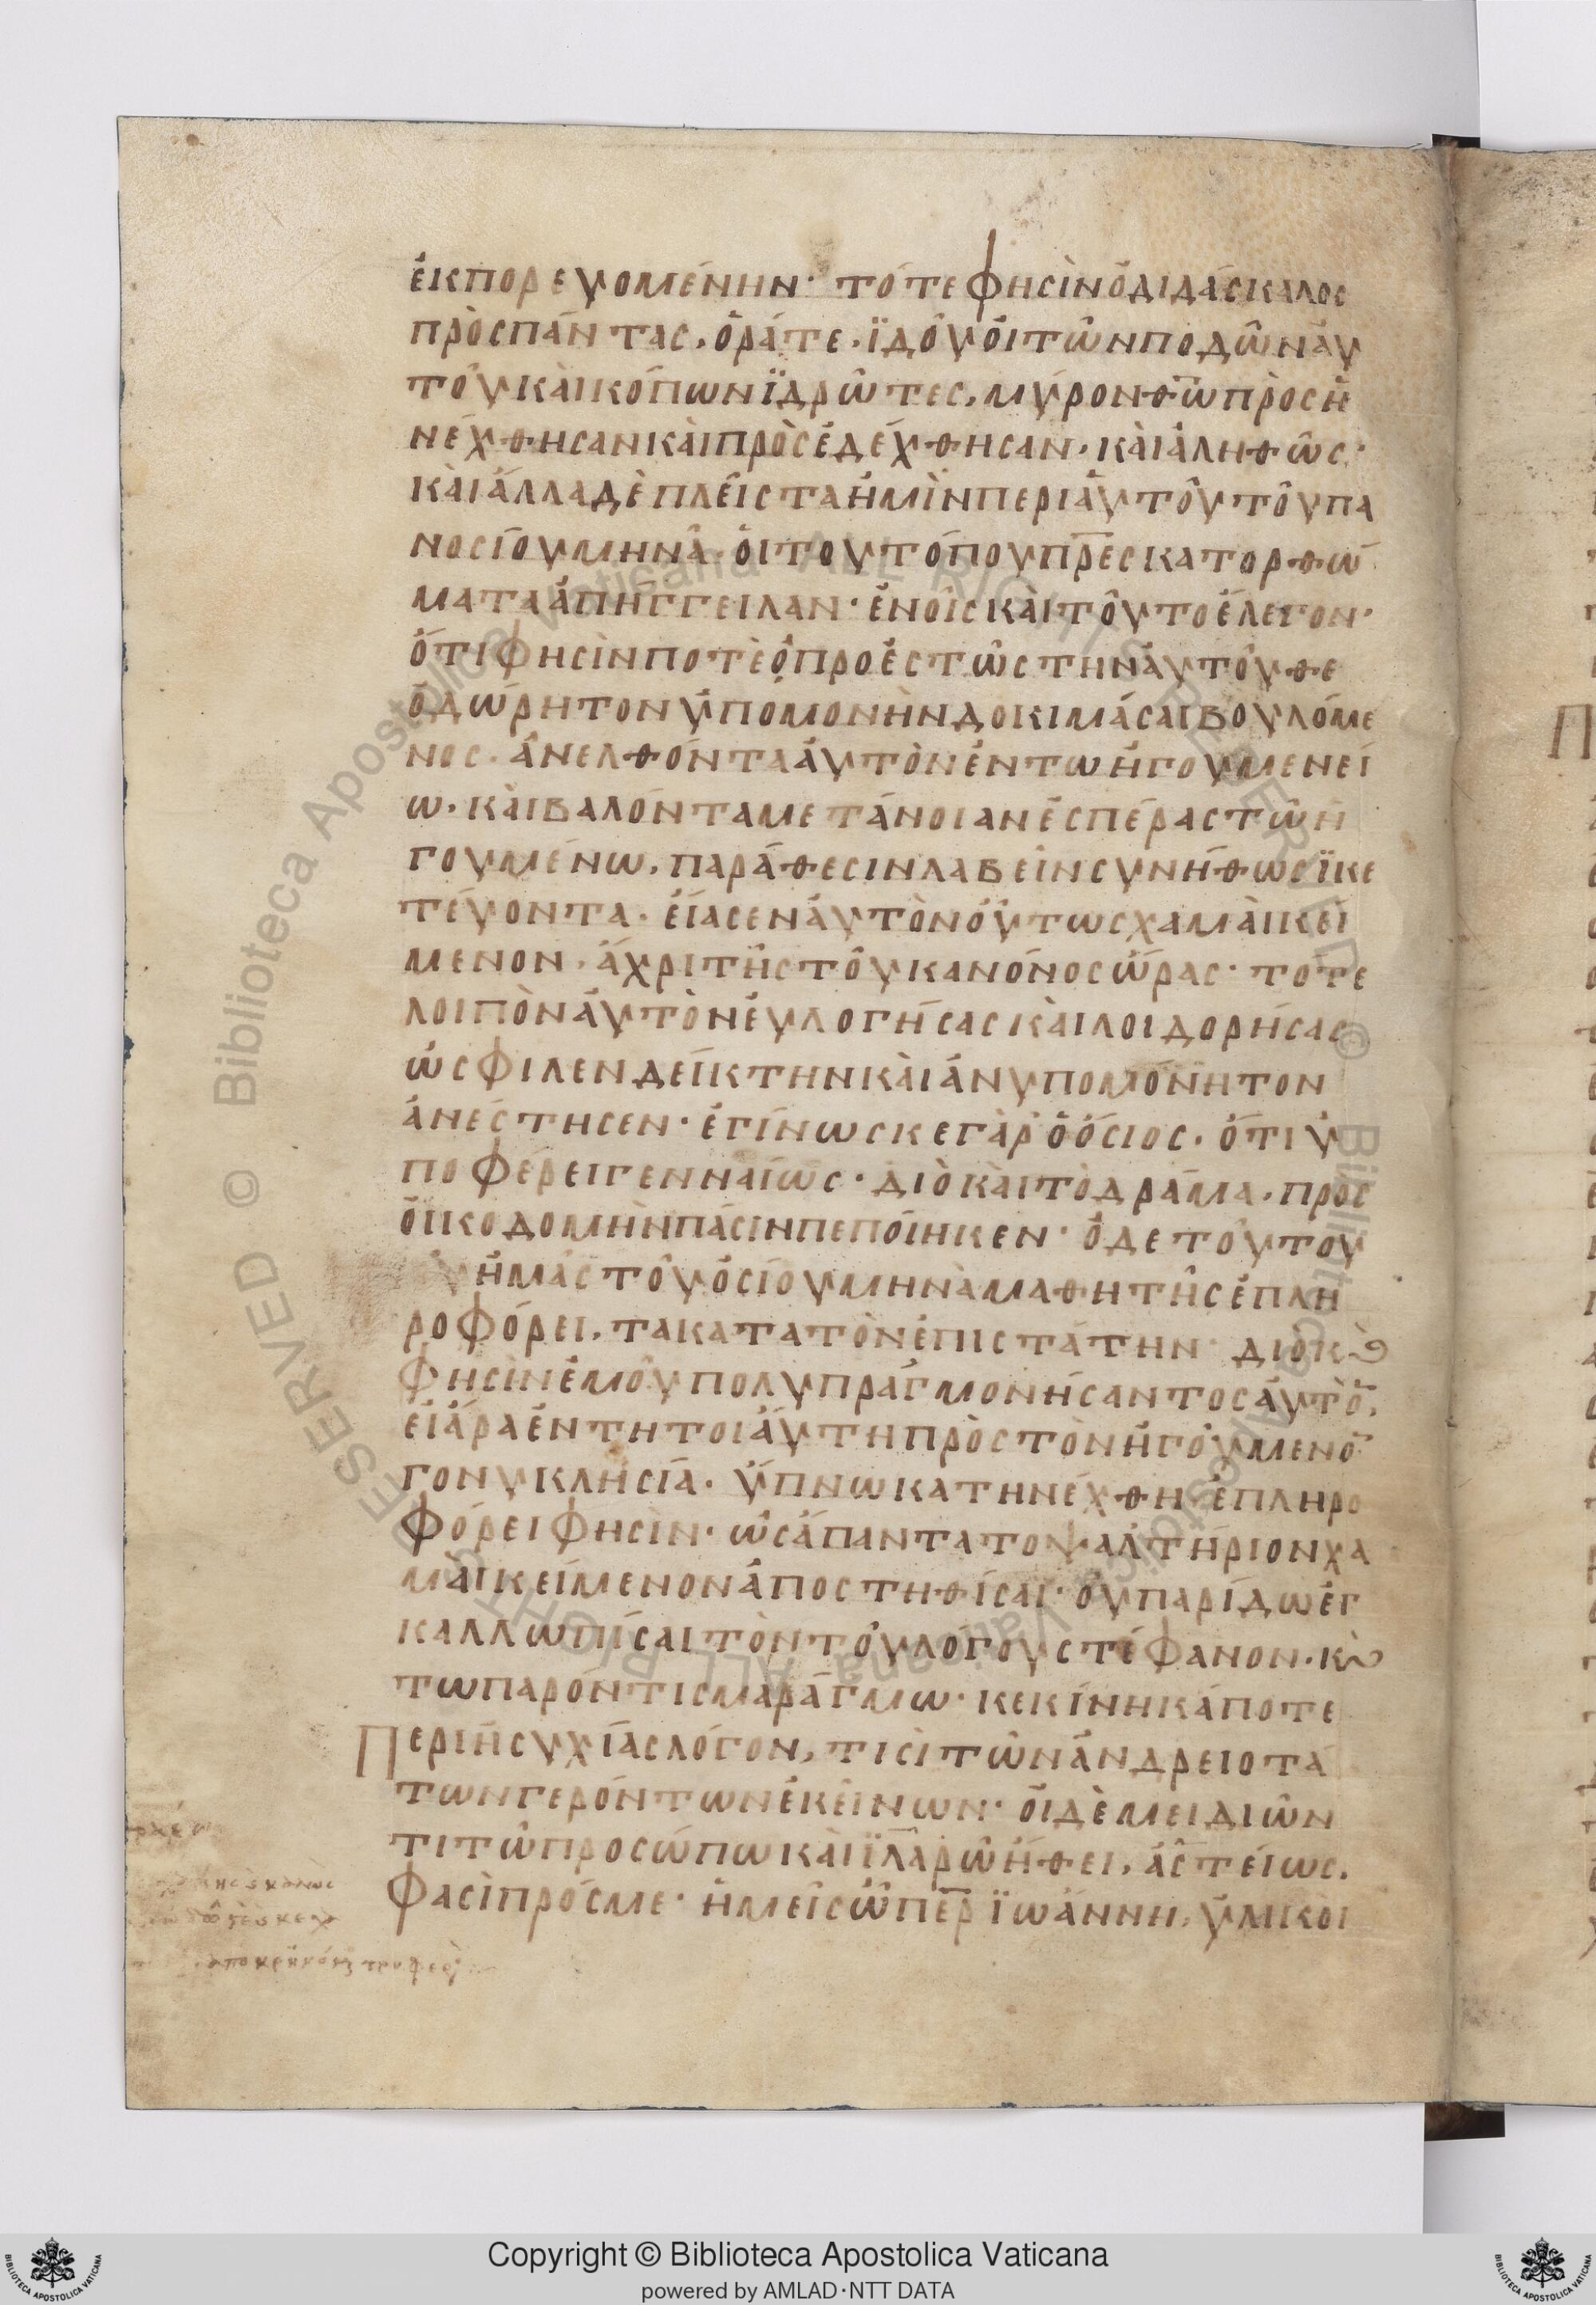 ἐκπορευομένην· τότε φησὶν ὁ διδάσκαλος
πρὸς πάντας, ὁρᾶτε, ἰδοὺ οἱ τῶν ποδῶν αὐ
τοῦ καὶ κόπων ἱδρῶτες, μύρον θῶ προση
νέχθησαν καὶ προσεδέχθησαν, καὶ ἀληθῶς·
καὶ ἄλλα δὲ πλεῖστα ἡμῖν περὶ αὐτοῦ τοῦ πα
νοσίου μηνᾶ, οἱ τοῦ τόπου πρες κατορθώ
ματα ἀπήγγειλαν· ἐν οἷς καὶ τοῦτο ἔλεγον·
ὅτι φησίν ποτὲ ὁ προεστὼς τὴν αὐτοῦ θε
οδώρητον ὑπομονὴν δοκιμάσαι βουλόμε
νος. ἀνελθόντα αὐτὸν ἐν τω ἡγουμενεί
ω. καὶ βαλόντα μετάνοιαν ἑσπέρας τῶ ἡ
γουμένω, παράθεσιν λαβεῖν συνήθως ἱκε
τεύοντα. εἴασεν αὐτὸν οὕτως χαμαὶ κεί
μενον, ἄχρι τῆς τοῦ κανόνος ὥρας· τότε
λοιπὸν αὐτὸν εὐλογήσας καὶ λοιδορήσας
ὡς φιλενδείκτην καὶ ἀνυπομόνητον
ἀνέστησεν· ἐγίνωσκε γὰρ ὁ ὅσιος, ὅτι ὑ
ποφέρει γενναίως· διὸ καὶ τὸ δράμα, πρὸς
οἰκοδομὴν πάσιν πεποίηκεν· ὁ δὲ τούτου
ἡμᾶς τοῦ ὁσίου μηνὰ μαθητῆς ἐπλη
ροφόρει, τα κατα τὸν ἐπιστάτην· διὸ κὰ
φησὶν ἐμοῦ πολυπραγμονήσαντος αὐτὸ̄,
εἰ ἄρα ἐν τη τοιαύτη πρὸς τὸν ἡγούμενο̄
γονυκλησία. ὕπνω κατηνέχθη, ἐπληρο
φόρει φησὶν· ὡς ἅπαντα το ψαλτήριον χα
μαὶ κείμενον ἀποστηθίσαι· οὐ παρίδω ἐγ
καλλωπίσαι τὸν τοῦ λόγου στέφανον. κὰ
τω παρόντι σμαράγμω· κεκίνηκά ποτε
Περὶ ἡσυχίας λόγον, τισὶ τῶν ἀνδρειοτά
των γερόντων ἐκείνων· οἱ δὲ μειδιῶν
τι τῶ προσώπω καὶ ἱλαρῶ ἤθει, ἀστείως,
φασὶ πρός με· ἡμεῖς ὦ περ ἰωάννη, ὑλικοὶ
Copyright © Biblioteca Apostolica Vaticana
powered by AMLAD·NTT DATA